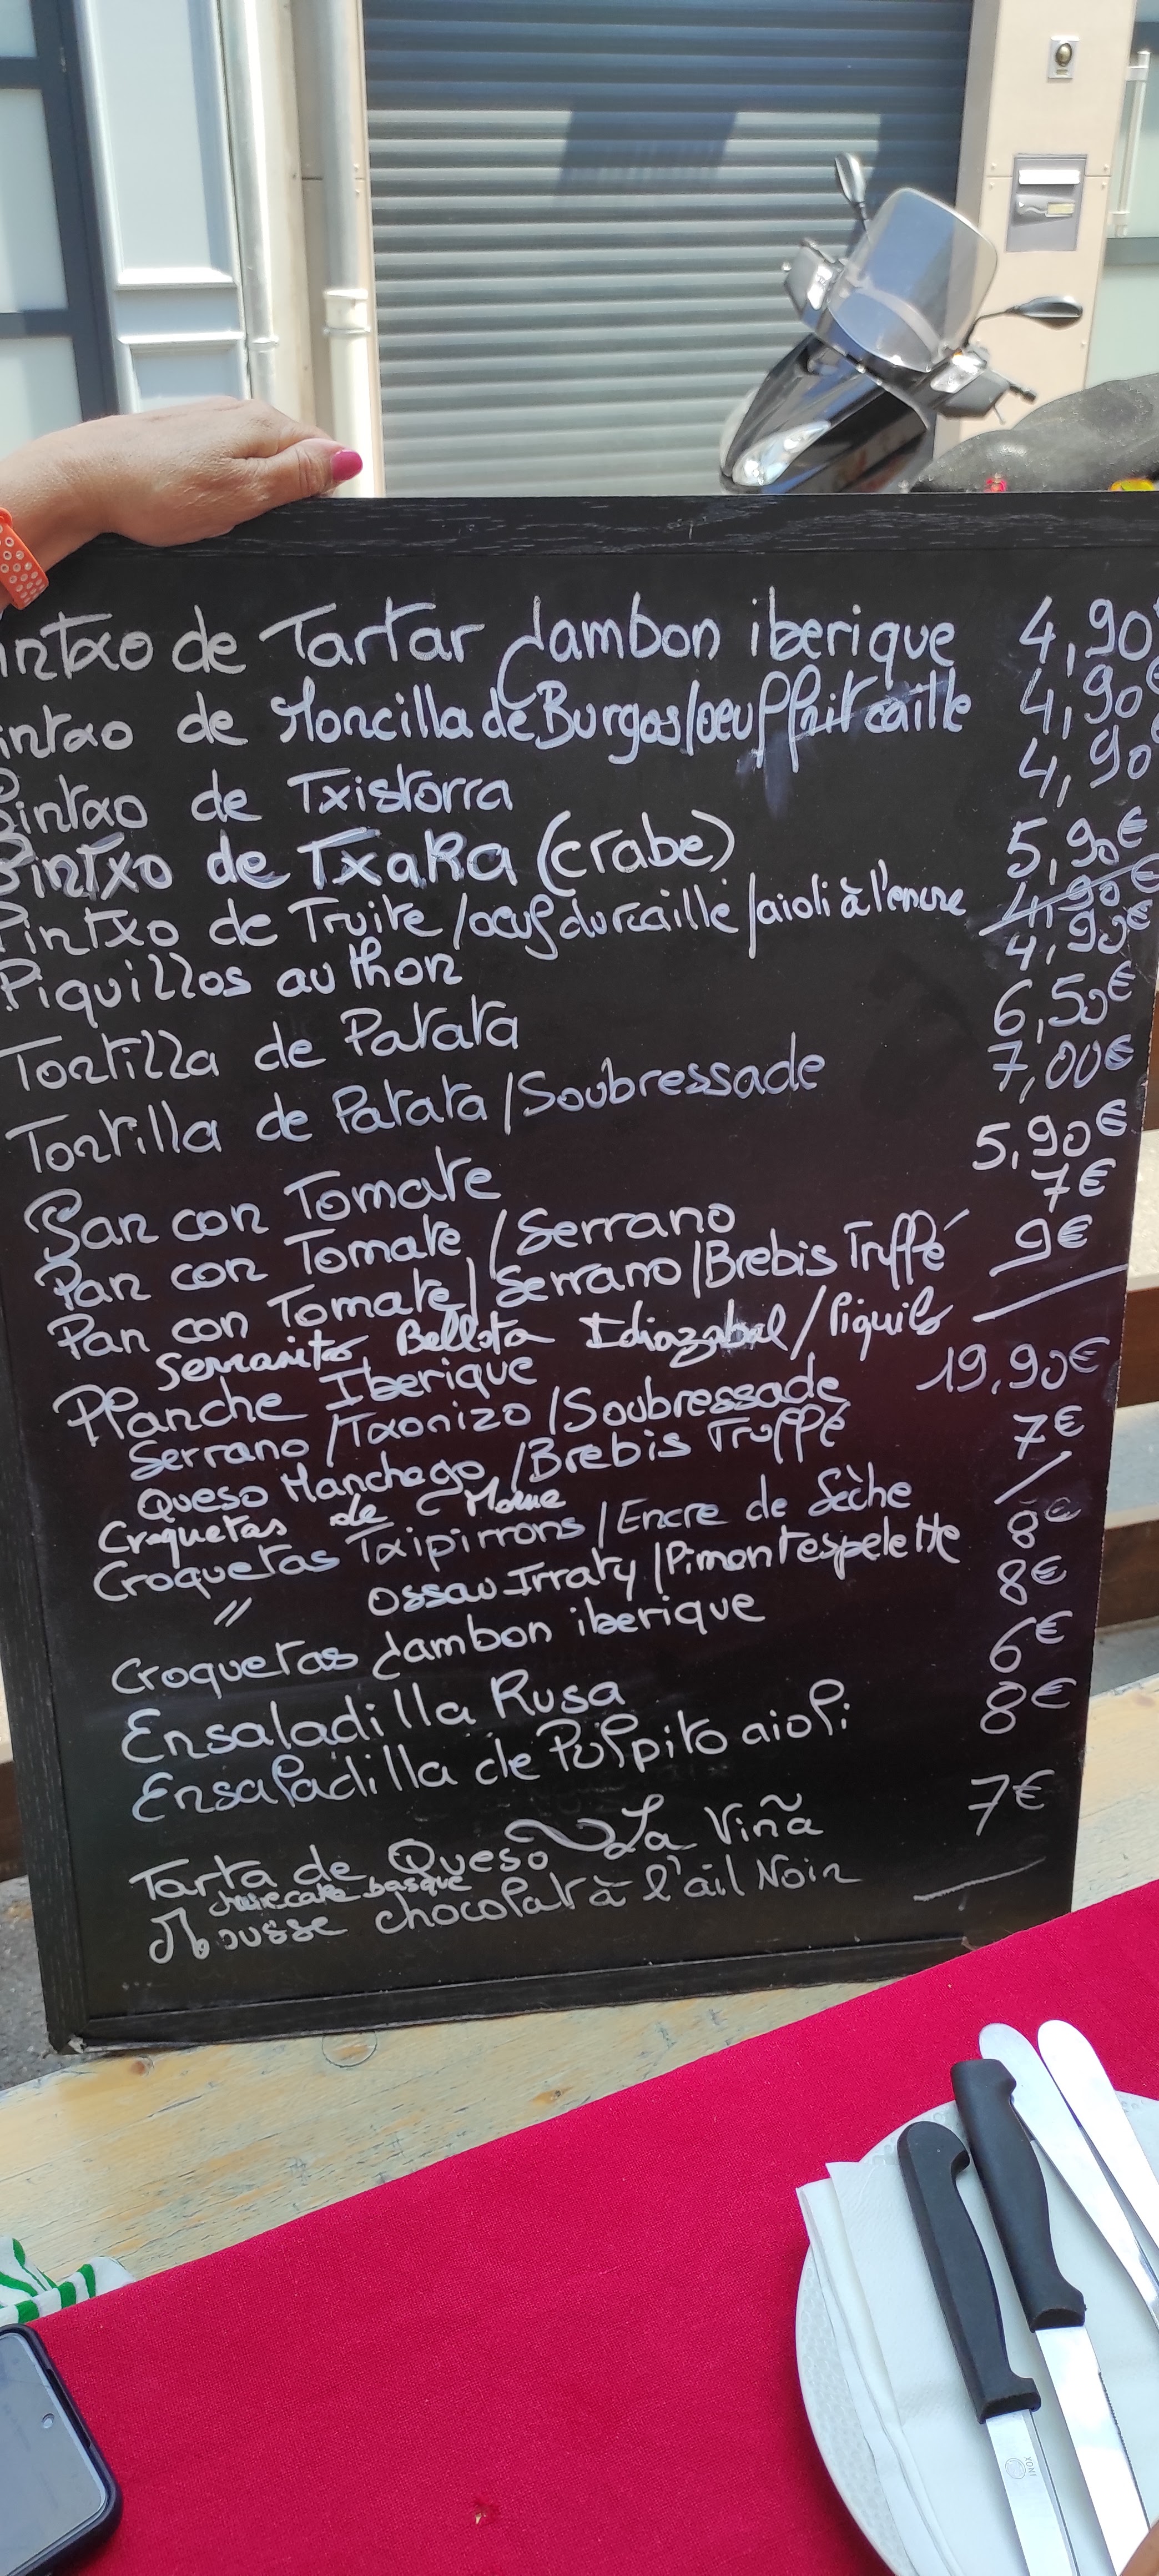 intxo de Tartar Jambon iberique 4,90€
intxo de Morcilla de Burgos/oeuf frit caille 4,90€
Pintxo de Txistorra 4,90€
Pintxo de Txaka (crabe) 5,90€
Pintxo de Truite /oeuf dur caille /aioli à l'encre 4,90€
Piquillos au thon 4,90€
Tortilla de Patata 6,50€
Tortilla de Patata /Soubressade 7,00€
Pan con Tomate 5,90€
Pan con Tomate /Serrano 7€
Pan con Tomate/ Serrano/Brebis Truffé 9€
Serranito Bellota Idiazabal / Piquils
Planche Iberique 19,90€
Serrano /Txorizo /Soubressade
Queso Manchego /Brebis Truffé
Croquetas de Morue 7€
Croquetas Txipirrons /Encre de Sèche
" Ossau Irraty /Piment espelette 8€
Croquetas Jambon iberique 8€
Ensaladilla Rusa 6€
Ensaladilla de Pulpito aioli 8€
Tarta de Queso La Viña 7€
cheesecake basque
Mousse chocolat à l'ail Noir
INOX